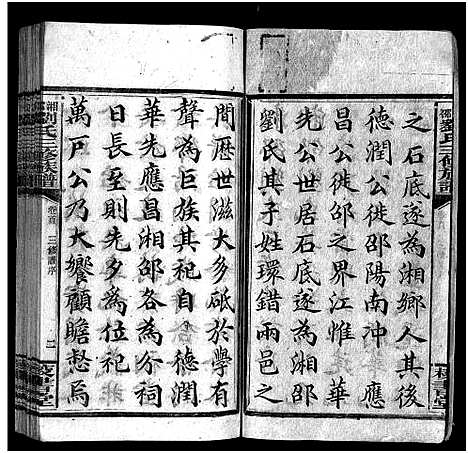 之石底遂為湘鄉人其後
德潤公徙邵陽南冲應
昌公徙邵之界江惟華
華先公世居石底遂為湘邵
劉氏其子姓環錯兩邑之
間歷世滋大多砥於學有
聲為巨族其祀自德潤
華先應昌湘邵各為分祠
日長至則先夕為位祀
萬戶公乃大饗顧瞻愁焉
劉氏三修族譜
卷首
三修譜序
二